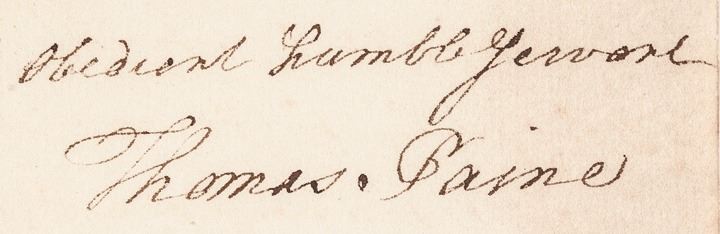 Obedient humble Servant
Thomas. Paine